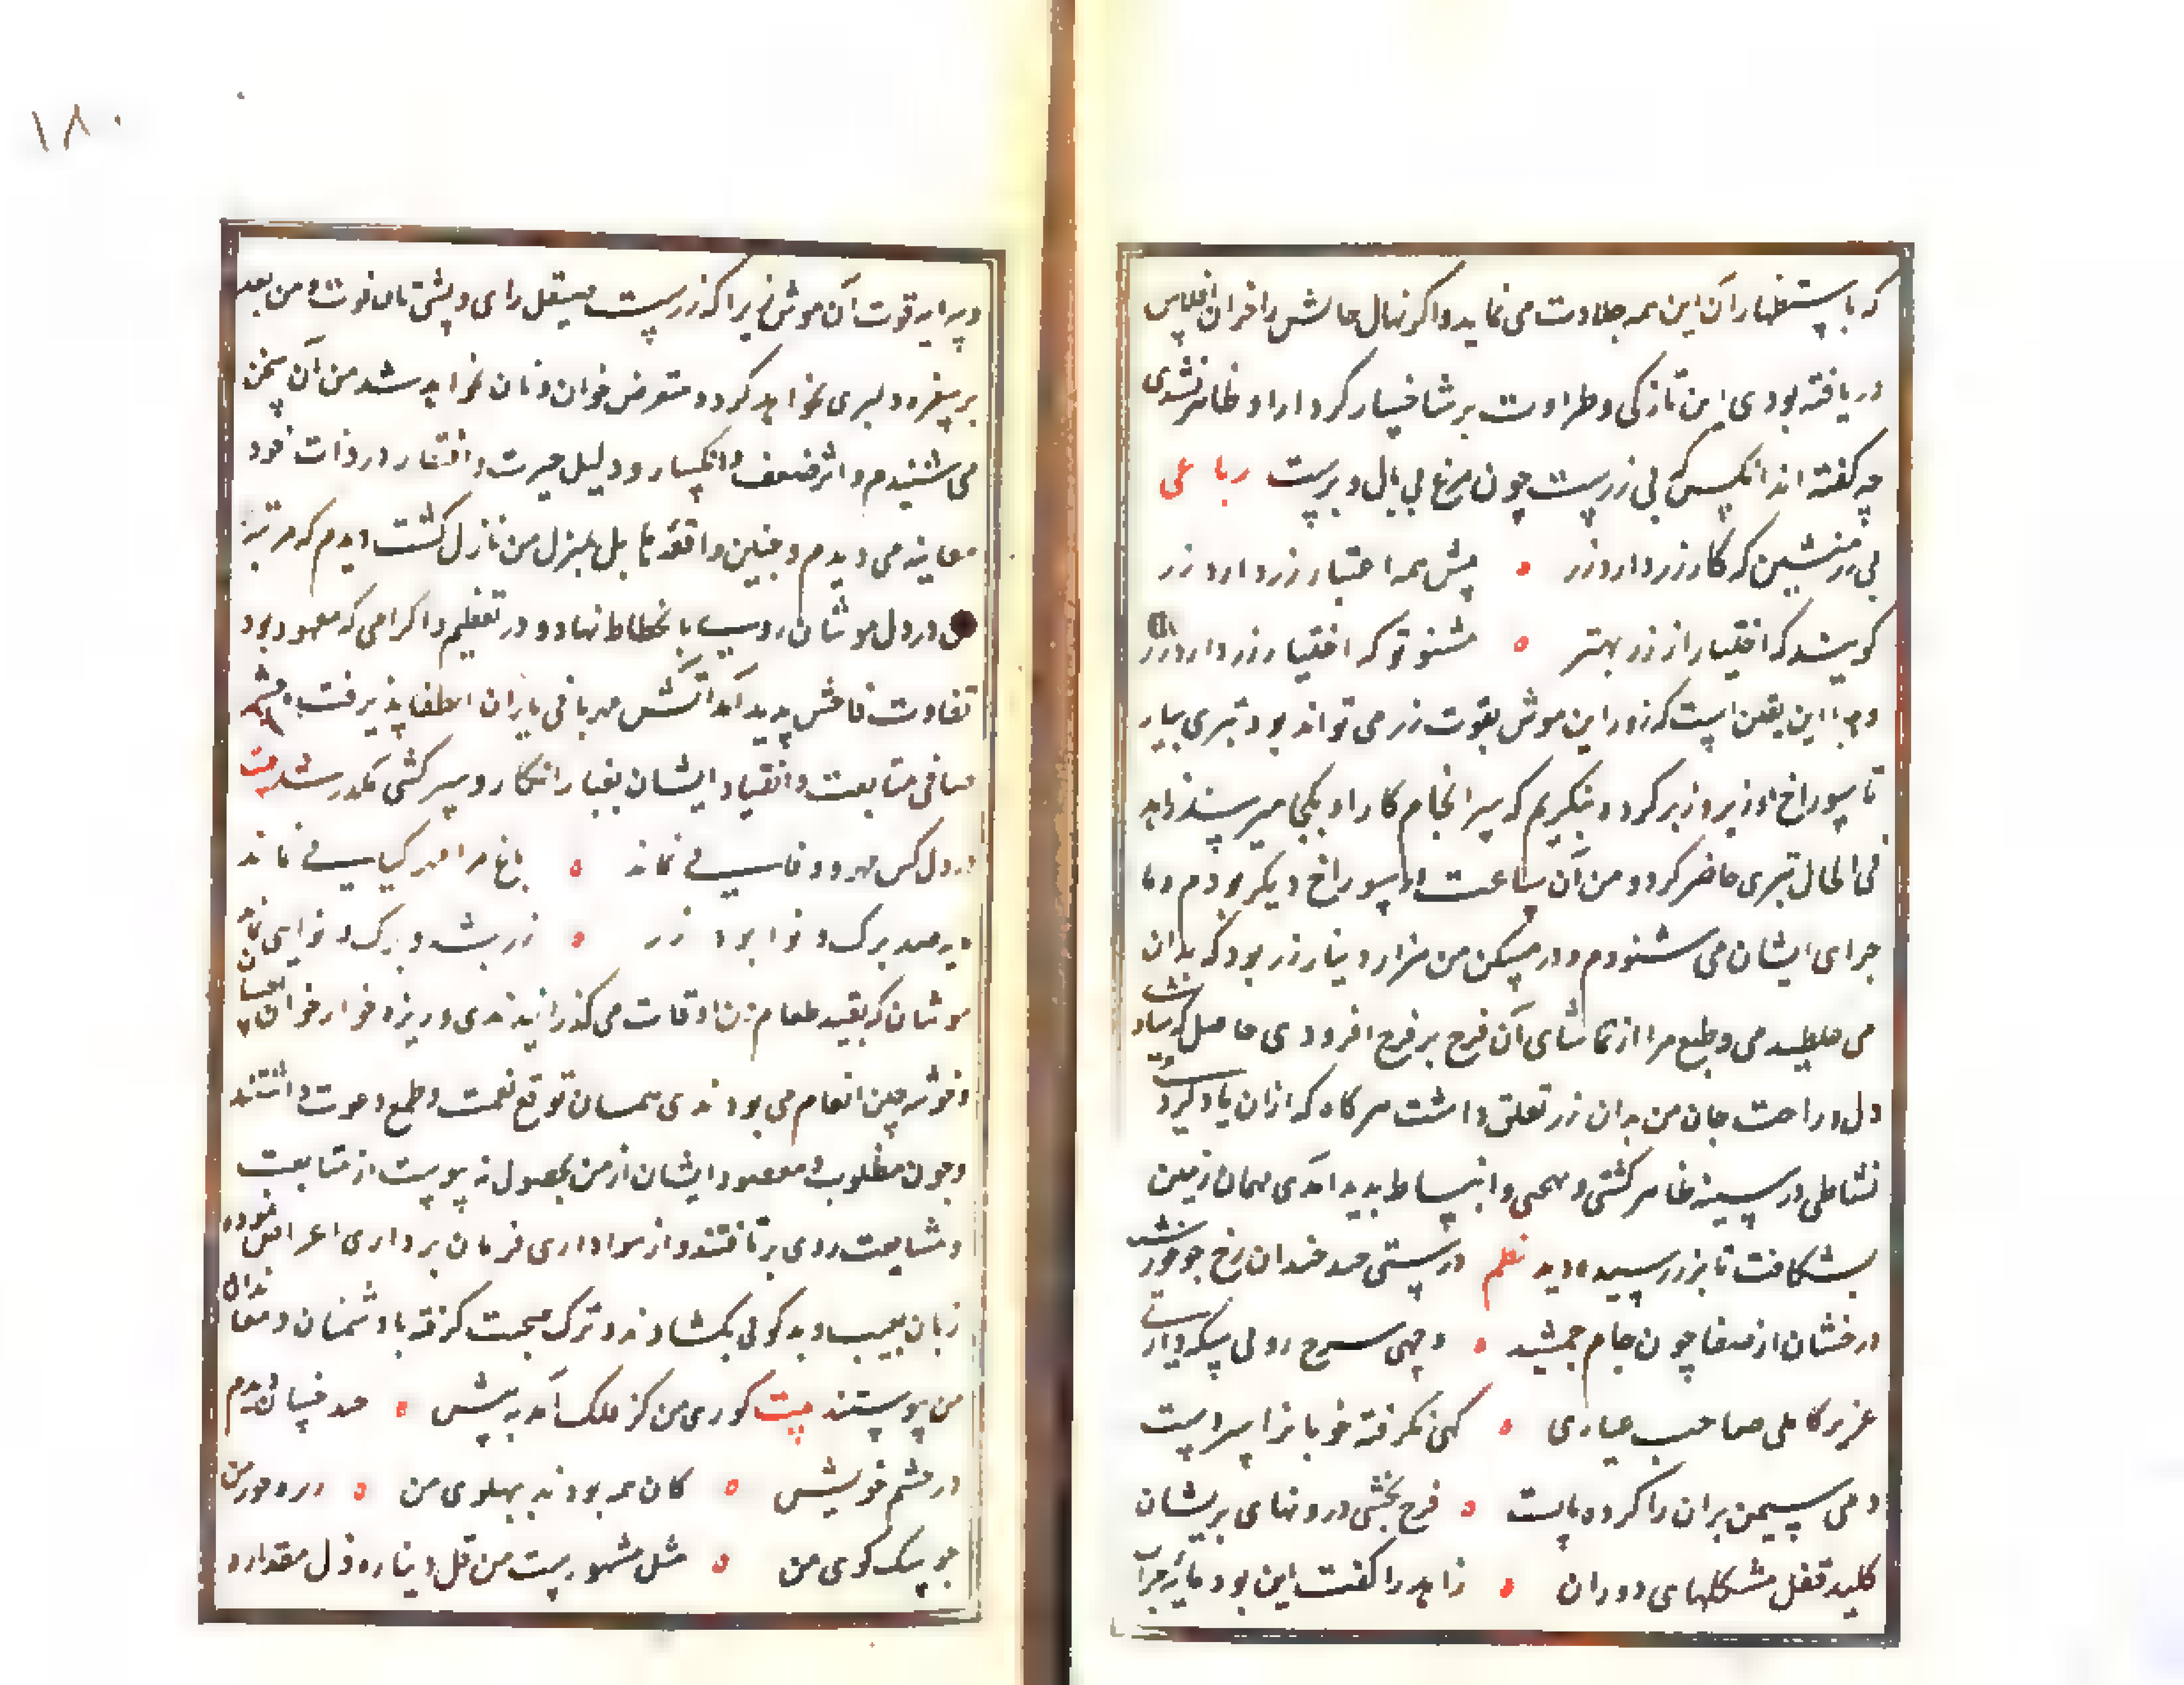 که باستظهار آن این همه جلادت می نماید و اگر نهال حالش را خزان افلاس
دریافته بودی این تازکی و طراوت بر شاخسار کردار او ظاهر نشدی
چه کفته اند انکس که بی زرست چون مرغ بی بال و پرست رباعی
بی زر منشین که کار زر دارد زر پیش همه اعتبار زر دارد زر
کویند که اختیار از زر بهتر مشنو تو که اختیار زر دارد زر
و مرا این یقین است که زور این موش بقوت زر می تواند بود تبری بیار
تا سوراخ او زیر و زبر کرده بنکریم که سرانجام کار او بکجا میرسد زاهد
فی الحال تبری حاضر کرد و من آن ساعت در سوراخ دیکر بودم و ما
جرای ایشان می شنودم و در مسکن من هزار دینار زر بود که بر آن
می غلطیدمی و طبع مرا از تماشای آن فرح بر فرح افزودی حاصل که شادی
دل و راحت جان من بدان زر تعلق داشت هر کاه که ازان یاد کردمی
نشاطی در سینه ظاهر کشتی و بهجتی و انبساط پدید آمدی مهمان زمین
بشکافت تا بزر رسید دید نظم درستی چند خندان رخ چو خورشید
درخشان از صفا چون جام جمشید وجهی سرخ رویی سکه داری
عزیز کاملی صاحب عیاری کهی نکرفته خوبانرا سر دست
دمی سیمین بران را کرده پابست فرح بخش درونهای پریشان
کلید قفل مشکلهای دوران زاهد را کفت این بود مایه جرأت
و پیرایه قوت آن موش زیرا که زرست صیقل رای و پشتیبان قوت و من بعد
بر سفره دلیری نخواهد کرد و متعرض خوان و نان نخواهد شد من آن سخن
می شنیدم و اثر ضعف و انکسار و دلیل حیرت و افتقار در ذات خود
معاینه می دیدم و چنین واقعه هایل بمنزل من نازل کشت دیدم که مرتبه
من در دل موشان روی بانحطاط نهاد و در تعظیم و اکرامی که معهود بود
تفاوت فاحش پدید آمد آتش مهربانی یاران انطفا پذیرفت و چشمه
صافی متابعت و انقیاد ایشان بغبار انکار و سرکشی مکدر شد بیت
در دل کس مهر و وفاسی نماند باغ مرا مهر کیاسی نماند
مایه صد برک و نوا بود زر زر بشد و برک و نوایی نماند
موشان که بقیه طعام من اوقات می کذرانیدندی و ریزه خوار خوان احسان
و خوشه چین انعام می بودندی همسان توقع نعمت و طمع دعوت داشتند
و چون مطلوب و مقصود ایشان از من بحصول نه پیوست از متابعت
و مشایعت روی برتافتند و از هواداری و فرمان برداری اعراض نموده
زبان بعیب و بدکویی بکشادند و ترک صحبت کرفته با دشمنان و معاندان
من پیوستند بیت کوری من کز فلک آمد به پیش صد خسان دیدم
در چشم خویش کان همه بودند به پهلوی من
چو سک کوی من مثل مشهورست من قل دیناره ذل مقداره